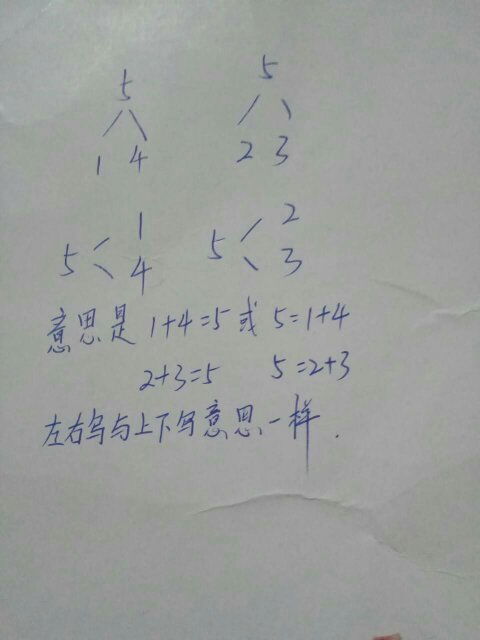 5 5
1 4 2 3
5 1 4 5 2 3
意思是 1+4=5 或 5=1+4
2+3=5 5=2+3
左右写与上下写意思一样.